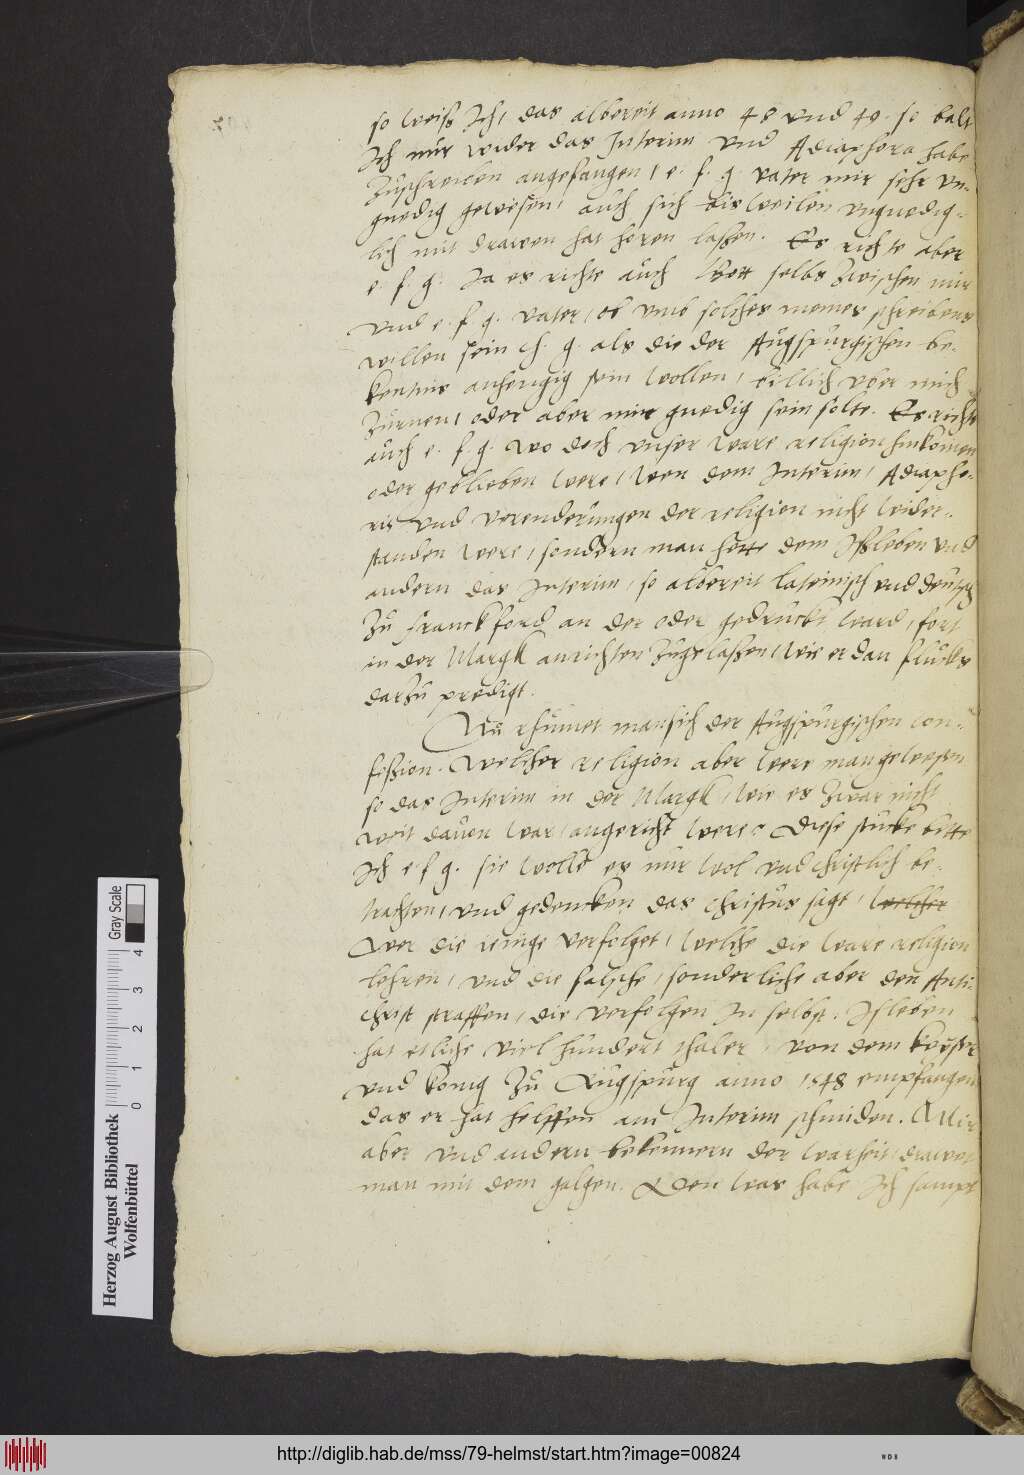 so weiß Ich, das albereit anno 48 und 49. so balt
Ich nur wider das Interim und Adiaphora habe
zuschreiben angefangen, e. f. g. vater mir sehr un-
gnedig gewesen, auch sich bisweilen ungnedig-
lich mit drawen hat horen laßen. Es richte aber
e. f. g. Ja es richte auch Gott selbs zwischen mir
und e. f. g. vater, ob umb solches meines schreibens
willen sein f. g. als die der Augspurgischen be-
kentnis anhengig sein wollen, billich uber mich
zurnen, oder aber mir gnedig sein solte. Es richte
auch e. f. g. wo doch unser ware religion hinkomen
oder geblieben were, wen dem Interim, Adiapho-
ris und verenderungen der religion nicht wider-
standen were, sondern man hette dem Ißleben und
andern das Interim, so albereit lateinisch und deutsch
zu Franckford an der oder gedruckt ward, fort
in der Margk anrichten zugelaßen, wie er dan flucks
darzu predigt.
Nu rhumet man sich der Augspurgischen Con-
feßion. Welcher religion aber were man gewesen
so das Interim in der Margk, wie es zwar nicht
weit davon war, angericht were? Diese stucke bitte
Ich e f g. sie wolle es nur wol und christlich be-
trachten, und gedencken das Christus sagt, welcher
Wer die ienige verfolget, welche die ware religion
lehren, und die falsche, sonderliche aber den Anti-
christ straffen, die verfolgen In selbst. Isleben
hat etliche viel hundert thaler, von dem keyser
und konig zu Augspurg anno 1548 empfangen
das er hat helffen am Interim schmiden. Mir
aber und andern bekennern der warheit, drawet
man mit dem galgen. Den was habe Ich sampt
Gray Scale
0 1 2 3 4
Herzog August Bibliothek
Wolfenbüttel
http://diglib.hab.de/mss/79-helmst/start.htm?image=00824